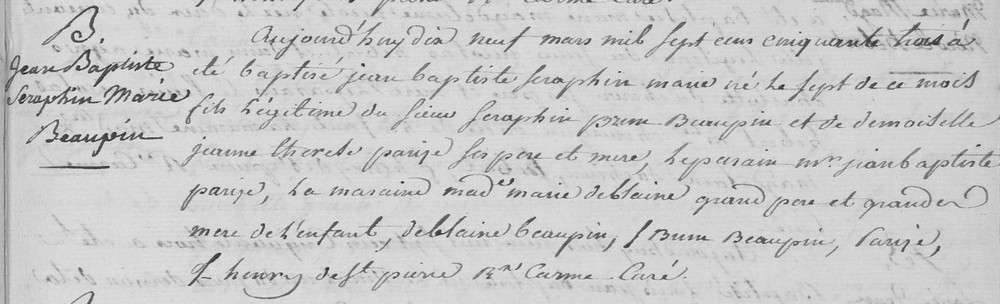 B.
Jean Baptiste
Seraphin Marie
Beaupin
Aujourd'huy dix neuf mars mil sept cens cinquante trois à
eté baptisé jean baptiste seraphin marie né le sept de ce mois
fils légitime du sieur seraphin Brun Beaupin et de demoiselle
jeanne therese parize ses pere et mere, le parain mr jean baptiste
parize, la maraine made marie deblaine grand pere et grande
mere de l'enfant, deblaine beaupin, Brun Beaupin, Parize,
f henry de st pierre Rx Carme Curé.